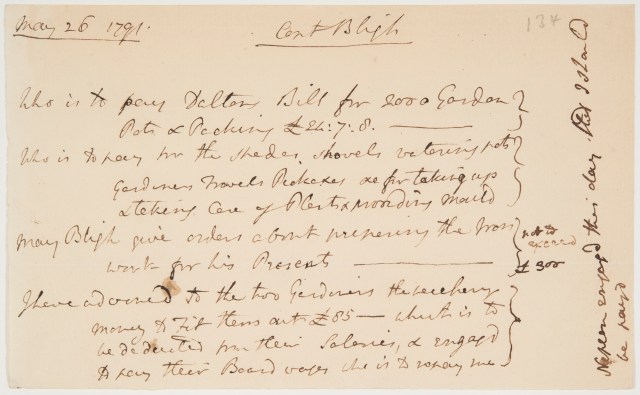 May 26 1791.
Capt Bligh
134
Who is to pay Daltons Bill for 2000 Garden
Pots & Packing £24:7:8.
Who is to pay for the spades, shovels watering pots
Gardeners Trowels Pickaxes & for taking up
& taking Care of Plants & providing Mould
May Bligh give orders about preparing the Iron
work for his Presents
not to
exceed
£300
I have advanced to the two Gardeners
money to Fit them out £85 — which is to
be deducted from their Salaries, & engagd
to pay their Board wages who is to repay me
Nepean engagd this day that I should
be payd